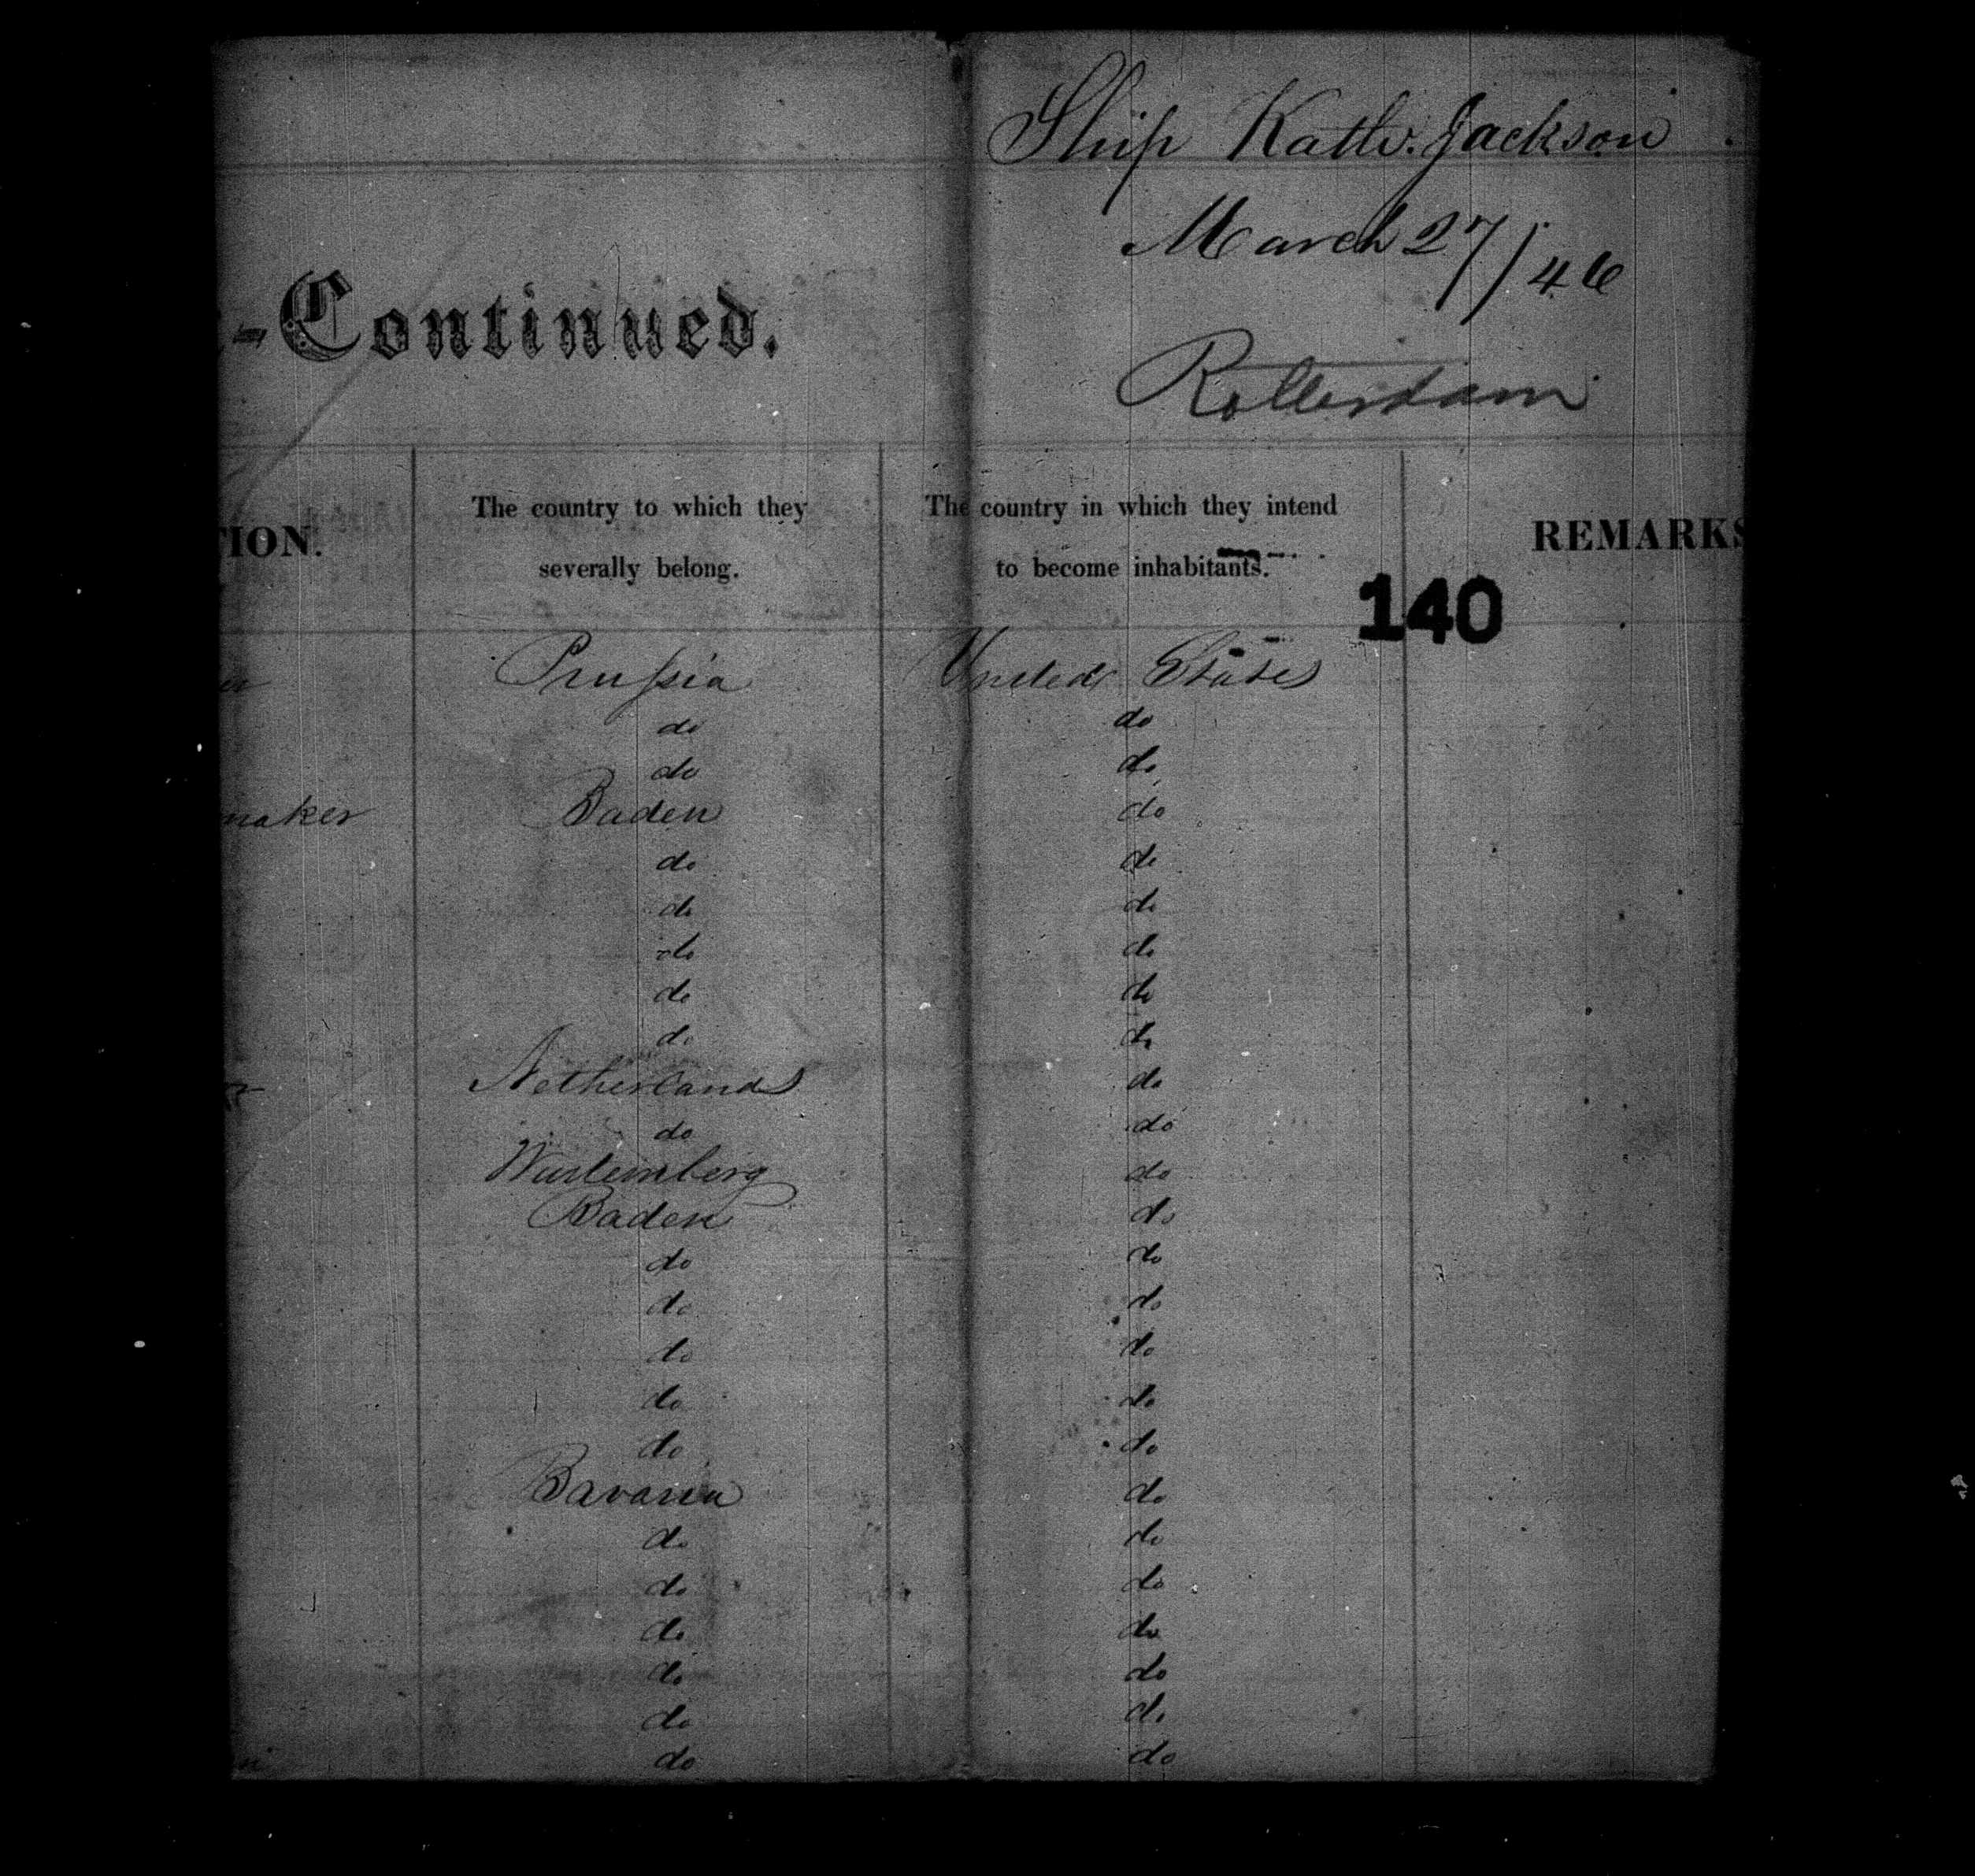 Ship Kath. Jackson
March 27/46
- Continued.
Rotterdam
TION. The country to which they severally belong. The country in which they intend to become inhabitants. REMARKS
140
er Prussia United States
do do
do do
maker Baden do
do do
do do
do do
do do
do do
Netherlands do
do do
Wurtemberg do
Baden do
do do
do do
do do
do do
do do
Bavaria do
do do
do do
do do
do do
do do
do do